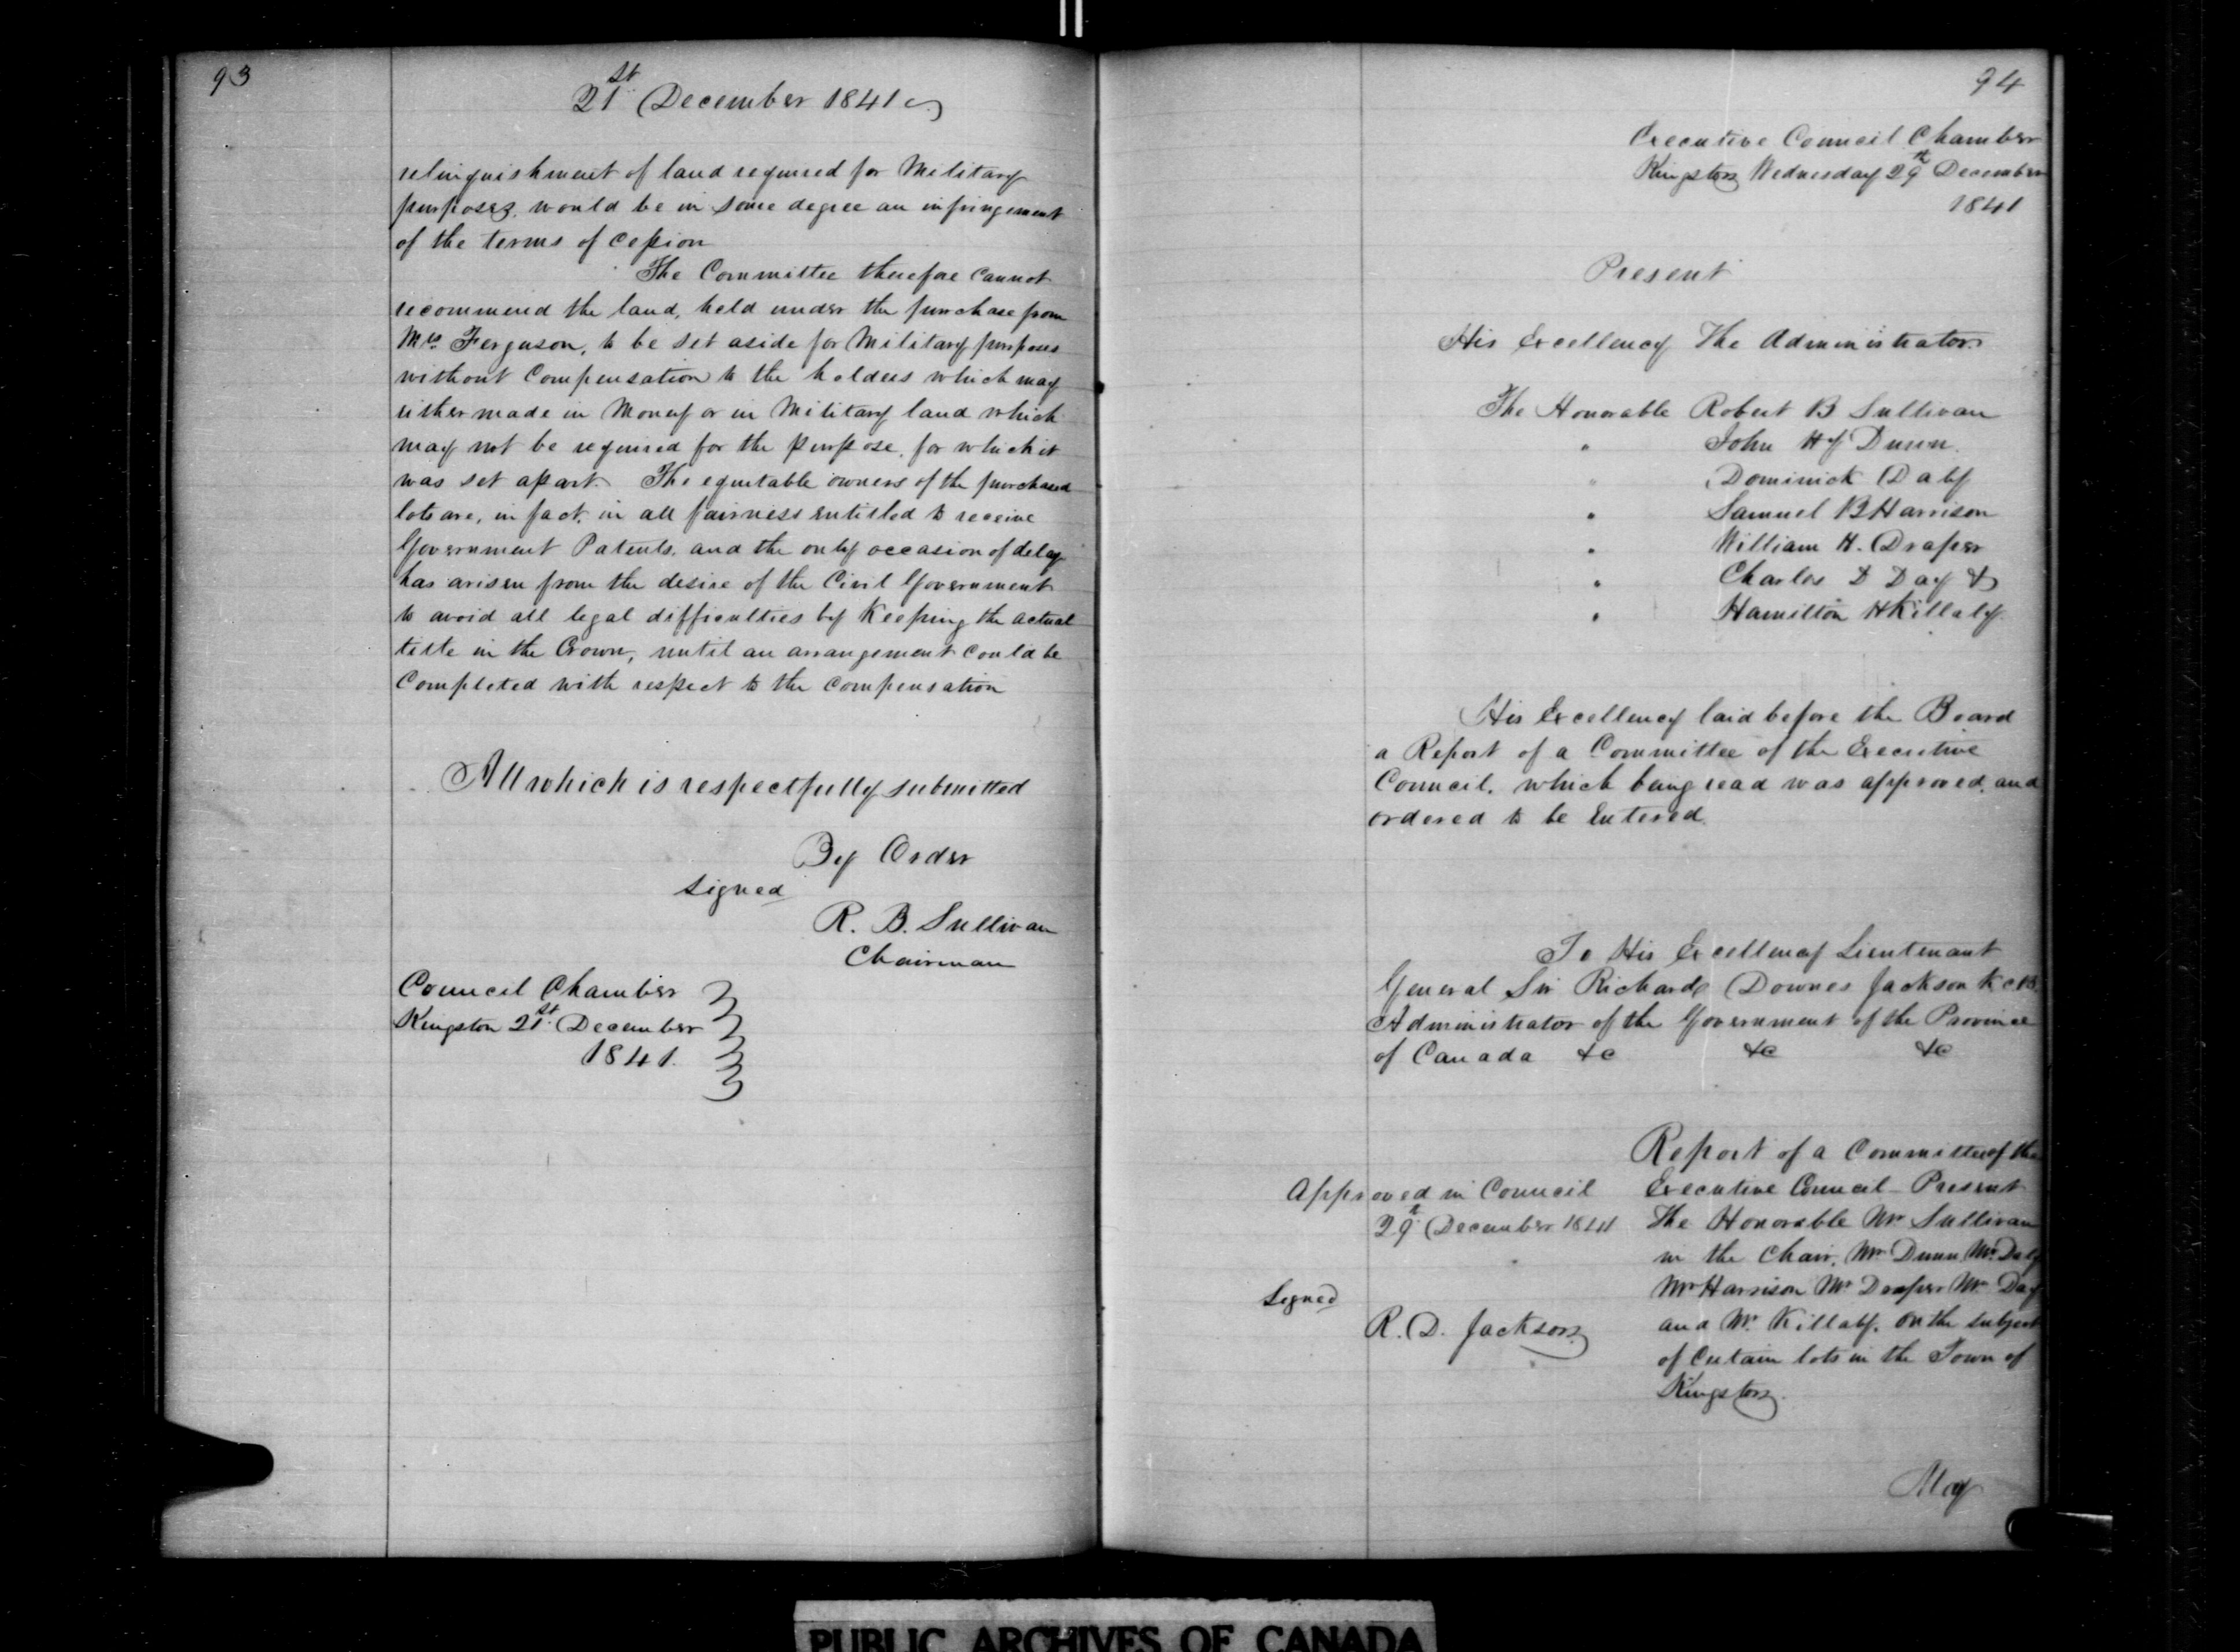 93
21st December 1841
relinquishment of land required for Military
purposes, would be in some degree an infringement
of the terms of Cession
The Committee therefore cannot
recommend the land, held under the purchase from
Mrs Ferguson, to be set aside for Military purposes
without Compensation to the holders which may
either made in Money or in Military land which
may not be required for the purpose, for which it
was set apart. The equitable owners of the purchased
lots are, in fact, in all fairness entitled to receive
Government Patents, and the only occasion of delay
has arisen from the desire of the Civil Government
to avoid all legal difficulties by Keeping the actual
title in the Crown, until an arrangement could be
Completed with respect to the Compensation
All which is respectfully submitted
By Order
signed
R. B. Sullivan
Chairman
Council Chamber
Kingston 21st December
1841.
94
Executive Council Chamber
Kingston Wednesday 29th December
1841
Present
His Excellency The Administrator
The Honorable Robert B Sullivan
" John Hy Dunn.
" Dominick Daly
" Samuel B Harrison
" William H. Draper
" Charles D Day &
" Hamilton H Killaly
His Excellency laid before the Board
a Report of a Committee of the Executive
Council, which being read was approved, and
ordered to be Entered.
To His Excellency Lieutenant
General Sir Richard Downes Jackson K C B.
Administrator of the Government of the Province
of Canada &c &c &c
Report of a Committee of the
Approved in Council Executive Council Present
29th December 1841 The Honorable Mr Sullivan
in the Chair, Mr Dunn Mr Daly
Mr Harrison Mr Draper Mr Day
Signed
R. D. Jackson and Mr Killaly. On the subject
of Certain lots in the Town of
Kingston.
May
PUBLIC ARCHIVES OF CANADA